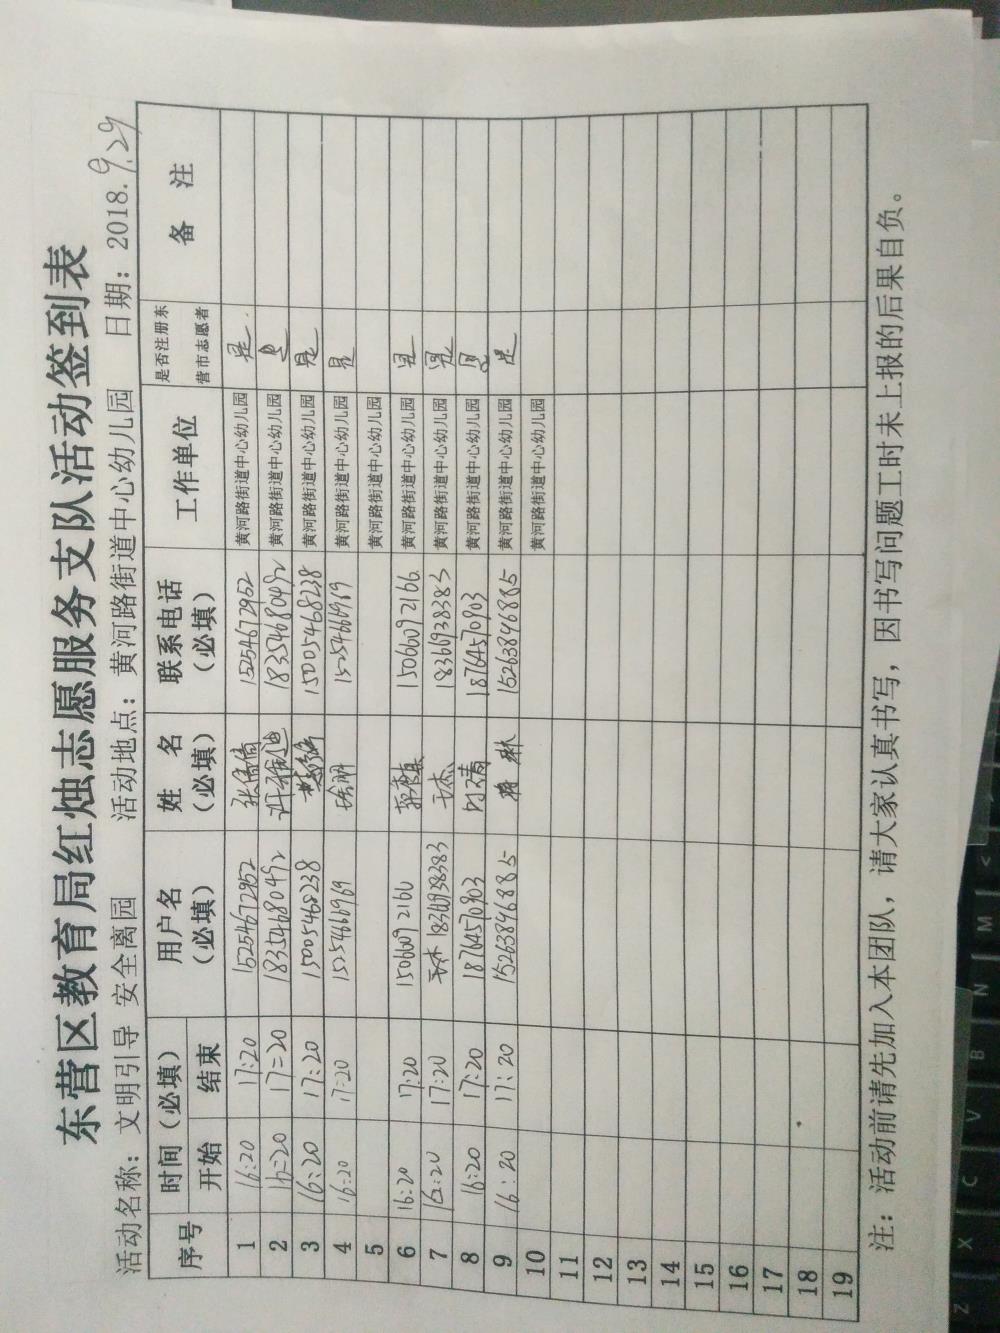 东营区教育局红烛志愿服务支队活动签到表
活动名称：文明引导 安全离园 活动地点：黄河路街道中心幼儿园 日期：2018.9.29
序号 时间（必填） 用户名（必填） 姓 名（必填） 联系电话（必填） 工作单位 是否注册东营市志愿者 备 注
开始 结束
1 16:20 17:20 15254672952 张倩倩 15254672952 黄河路街道中心幼儿园 是
2 16:20 17:20 18354680492 18354680492 黄河路街道中心幼儿园 是
3 16:20 17:20 15005468238 15005468238 黄河路街道中心幼儿园 是
4 16:20 17:20 15254666969 15254666969 黄河路街道中心幼儿园 是
5 黄河路街道中心幼儿园
6 16:20 17:20 15066092166 15066092166 黄河路街道中心幼儿园 是
7 16:20 17:20 18366938383 王杰 18366938383 黄河路街道中心幼儿园 是
8 16:20 17:20 18764570903 18764570903 黄河路街道中心幼儿园 是
9 16:20 17:20 15263896885 15263896885 黄河路街道中心幼儿园 是
10 黄河路街道中心幼儿园
11
12
13
14
15
16
17
18
19
注：活动前请先加入本团队，请大家认真书写，因书写问题工时未上报的后果自负。
Z X C V B N M <